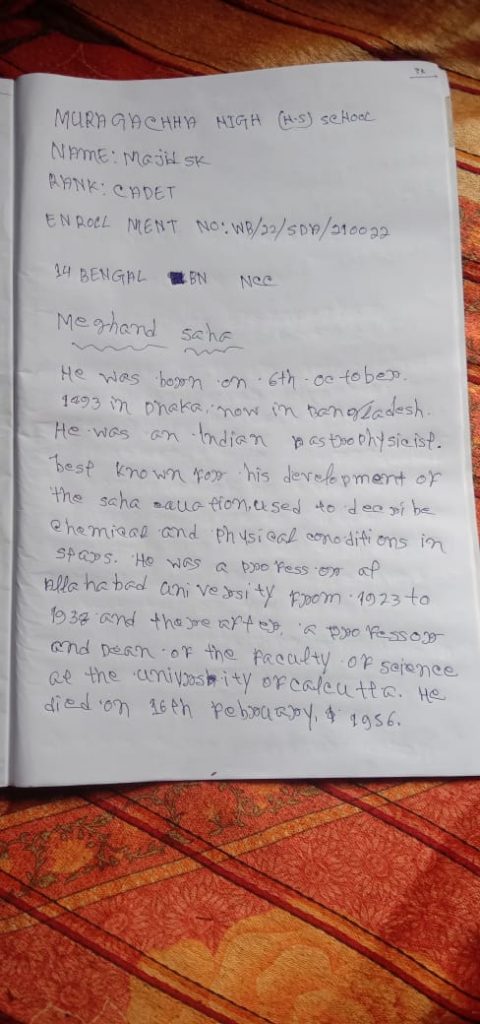 MURAGACHHA HIGH (H.S) SCHOOL
NAME: Majid SK
RANK: CADET
ENROLL MENT NO: WB/22/SDA/210022
14 BENGAL BN NCC
Meghand saha
He was born on 6th october.
1493 in Dhaka, now in Bangladesh.
He was an Indian astrophysicist.
best known for his development of
the saha equation, used to descri be
chemical and physical conditions in
stars. He was a professor at
Allahabad university from 1923 to
1938 and there after, a professor
and Dean of the Faculty of science
at the university of calcutta. He
died on 16th February, 1956.